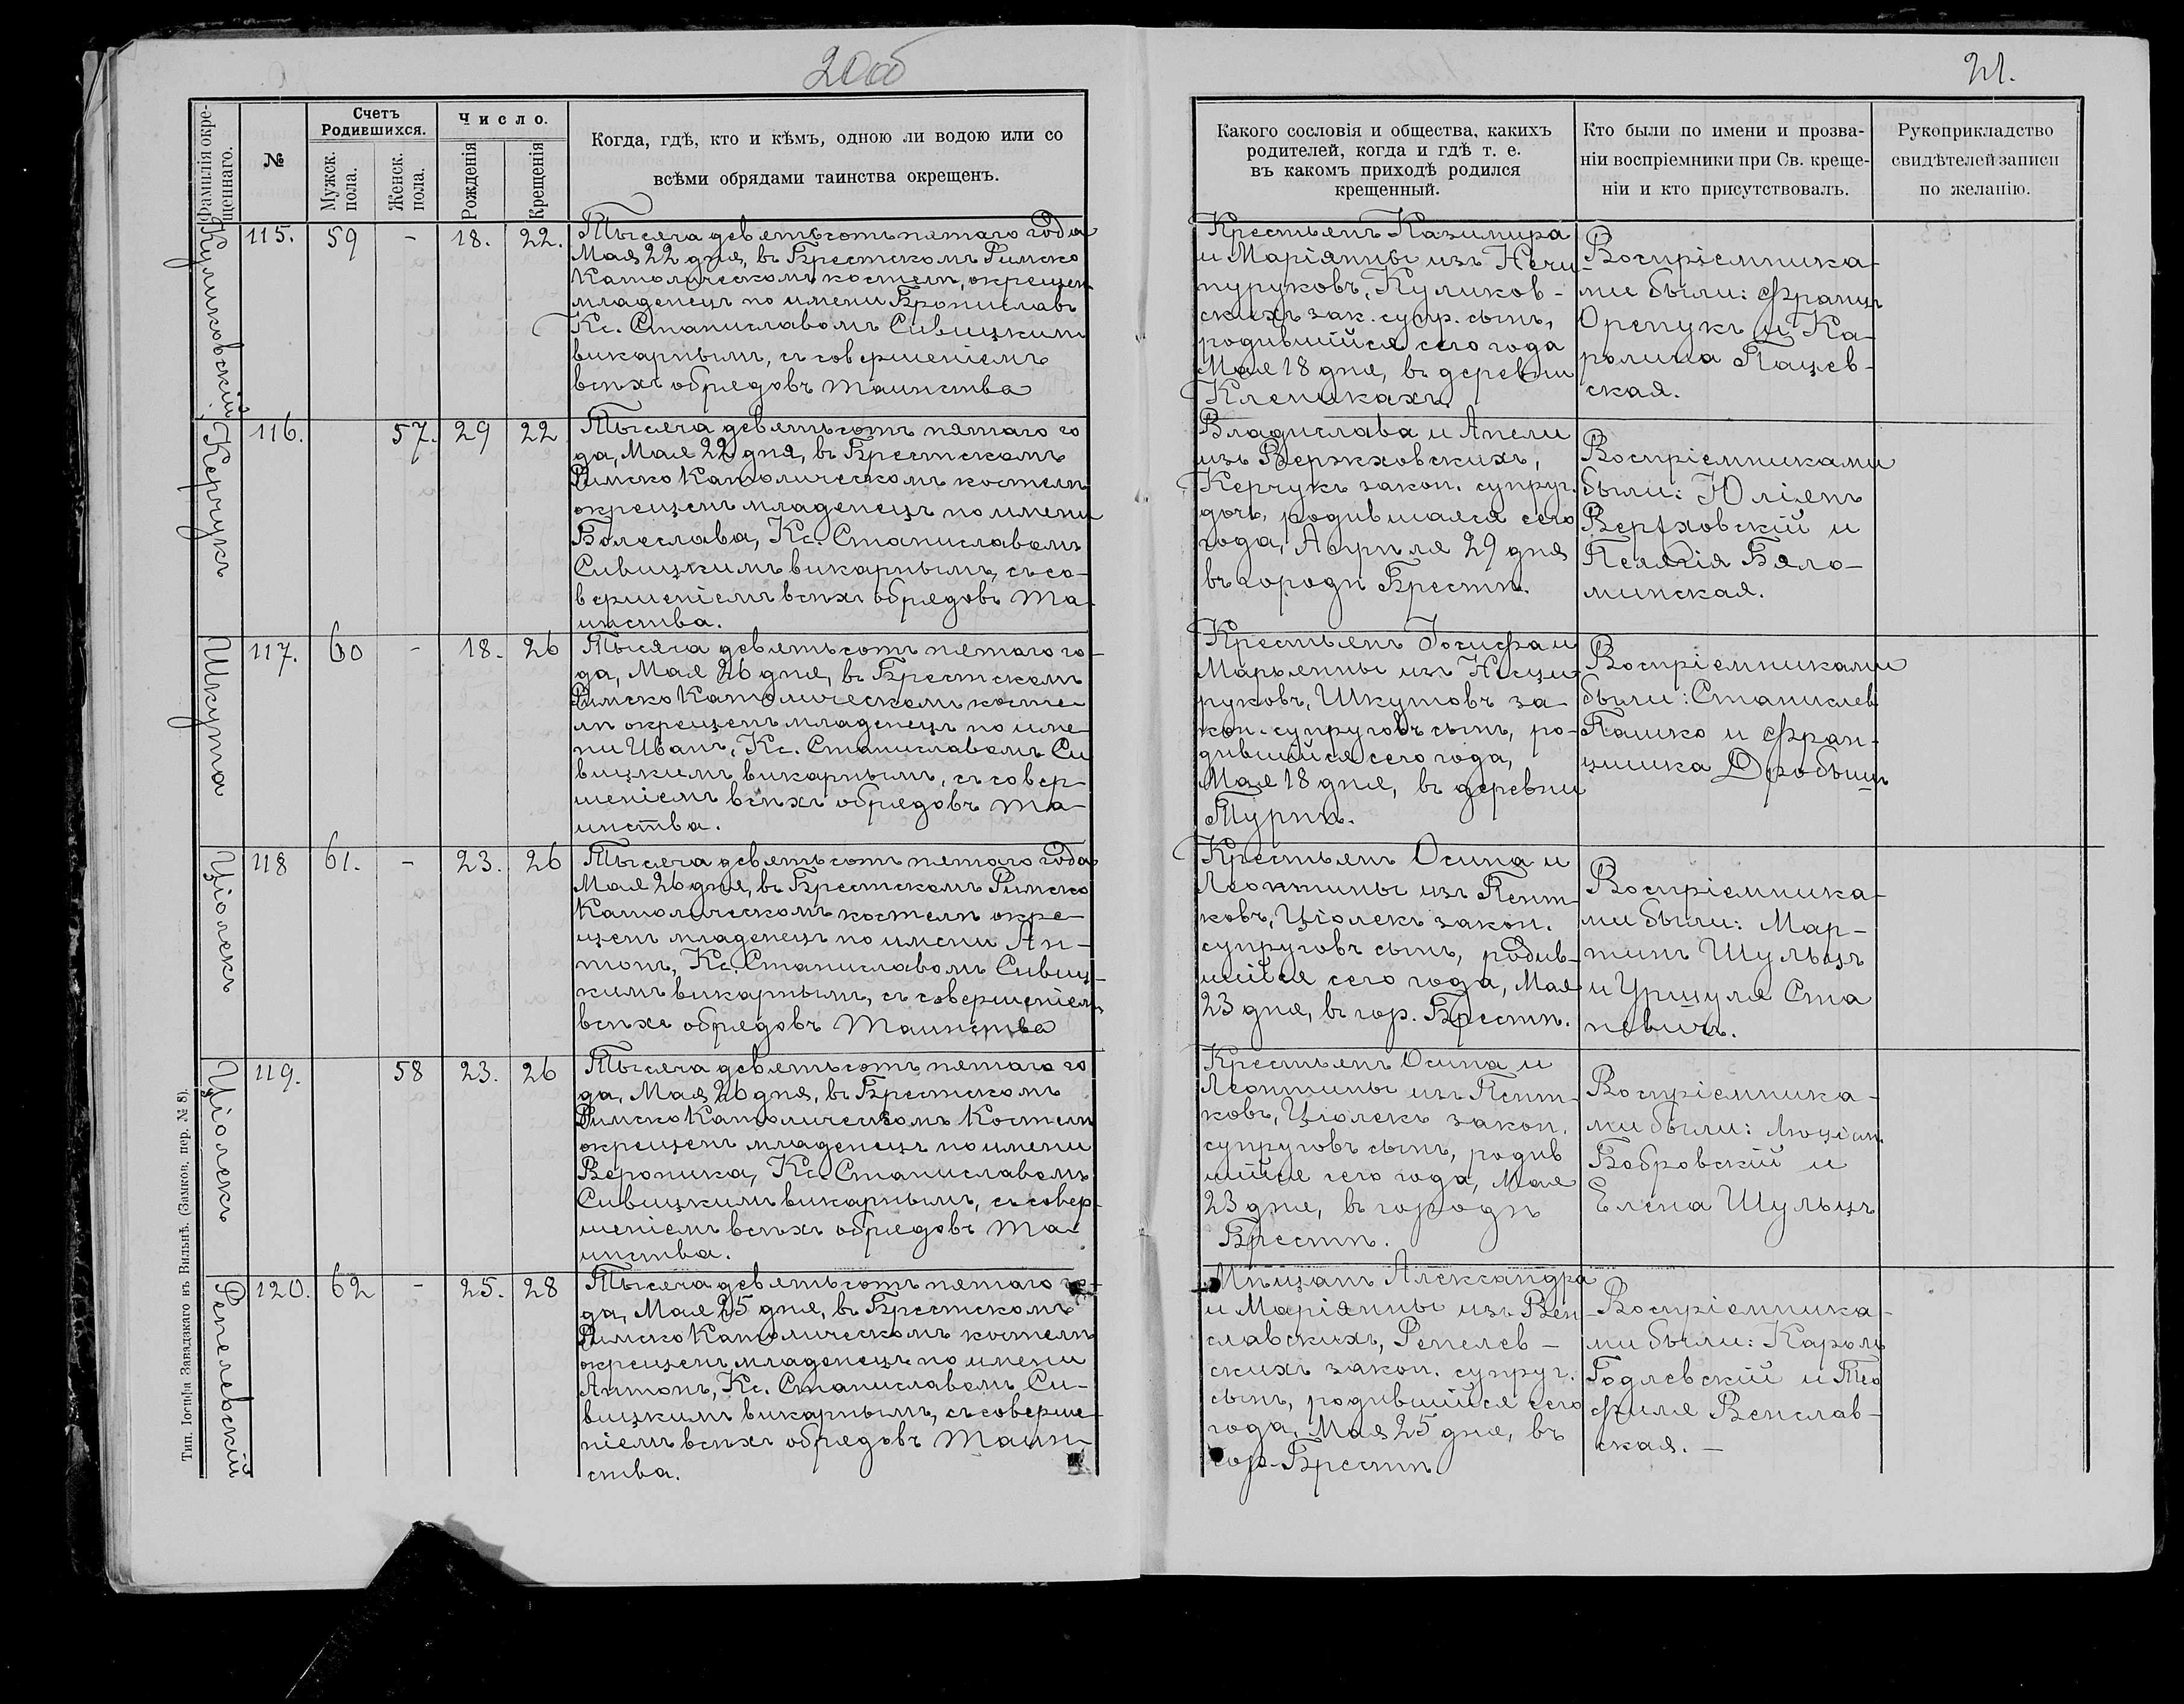 20об
21.
Фамилія окре-
щеннаго.
№
Счетъ
Родившихся.
Мужск.
пола.
Женск.
пола.
Число.
Рожденія
Крещенія
Когда, гдѣ, кто и кѣмъ, одною ли водою или со
всѣми обрядами таинства окрещенъ.
Какого сословія и общества, какихъ
родителей, когда и гдѣ т. е.
въ какомъ приходѣ родился
крещенный.
Кто были по имени и прозва-
ніи воспріемники при Св. креще-
ніи и кто присутствовалъ.
Рукоприкладство
свидѣтелей записи
по желанію.
Куликовскій
115. 59 - 18. 22.
Тысяча девятьсотъ пятаго года
Мая 22 дня, въ Брестскомъ Римско
Католическомъ костелѣ, окрещен
младенецъ по имени Брониславъ
Кс. Станиславомъ Сивицкимъ
викарнымъ, съ совершеніемъ
всѣхъ обрядовъ таинства
Крестьянъ Казимира
и Маріянны изъ Нечи-
пуруковъ, Куликов-
скихъ зак. супр. сынъ,
родившійся сего года
Мая 18 дня, въ деревни
Клепикахъ.
Воспріемника-
ми были: Францъ
Оренукъ и Ка-
ролина Пацев-
ская.
Керчукъ
116. 57. 29 22
Тысяча девятьсотъ пятаго го
да, Мая 22 дня, въ Брестскомъ
Римско Католическомъ костелѣ
окрещенъ младенецъ по имени
Болеслава, Кс. Станиславомъ
Сивицкимъ викарнымъ, съ со-
вершеніемъ всѣхъ обрядовъ та-
инства.
Владислава и Анели
изъ Вержховскихъ,
Керчукъ закон. супруг.
дочь, родившаяся сего
года, Апрѣля 29 дня
въ городѣ Брестѣ.
Воспріемниками
были: Юліянъ
Вержховскій и
Пелагія Бяло-
минская.
Шкута
117. 60 - 18. 26
Тысяча девятьсотъ пятаго го-
да, Мая 26 дня, въ Брестскомъ
Римско Католическомъ косте-
лѣ окрещенъ младенецъ по име-
ни Иванъ, Кс. Станиславомъ Си
вицкимъ викарнымъ, съ совер-
шеніемъ всѣхъ обрядовъ та-
инства.
Крестьянъ Іосифа и
Марьянны изъ
руковъ, Шкутовъ за-
кон. супруговъ сынъ, ро-
дившійся сего года,
Мая 18 дня, въ деревни
Турнѣ.
Воспріемниками
были: Станислав
Пашко и Фран-
цишка
Ціолекъ
118 61. - 23. 26
Тысяча девятьсотъ пятаго года
Мая 26 дня, въ Брестскомъ Римско
Католическомъ костелѣ окре-
щенъ младенецъ по имени Ан-
тонъ, Кс. Станиславомъ Сивиц-
кимъ викарнымъ, съ совершеніемъ
всѣхъ обрядовъ Таинства
Крестьянъ Осипа и
Леонтины изъ Пент-
ковъ, Ціолекъ закон.
супруговъ сынъ, родив-
шійся сего года, Мая
23 дня, въ гор. Брестѣ.
Воспріемника-
ми были: Мар-
тинъ Шульцъ
и Уршуля Ста
невичъ.
Ціолекъ
119. 58 23. 26
Тысяча девятьсотъ пятаго го
да, Мая 26 дня, въ Брестскомъ
Римско Католическомъ Костелѣ
окрещенъ младенецъ по имени
Вероника, Кс. Станиславомъ
Сивицкимъ викарнымъ, съ совер-
шеніемъ всѣхъ обрядовъ та-
инства.
Крестьянъ Осипа и
Леонтины изъ Пент-
ковъ, Ціолекъ закон.
супруговъ сынъ, родив
шійся сего года, Мая
23 дня, въ городѣ
Брестѣ.
Воспріемника-
ми были: Люціян.
Бобровскій и
Елена Шульцъ
Репелевскій
120. 62 - 25. 28
Тысяча девятьсотъ пятаго го-
да, Мая 25 дня, въ Брестскомъ
Римско Католическомъ костелѣ
окрещенъ, младенецъ по имени
Антонъ, Кс. Станиславомъ Си-
вицкимъ викарнымъ, съ соверше-
ніемъ всѣхъ обрядовъ Таин-
ства.
Мѣщанъ Александра
и Маріянны изъ Вен-
славскихъ, Репелев-
скихъ закон. супруг.
сынъ, родившійся сего
года, Мая 25 дня, въ
гор. Брестѣ
Воспріемника-
ми были: Кароль
Годлевскій и Тео
филя Венслав-
ская. -
Тип. Іосифа Завадзкаго въ Вильнѣ. (Замков. пер. № 8).